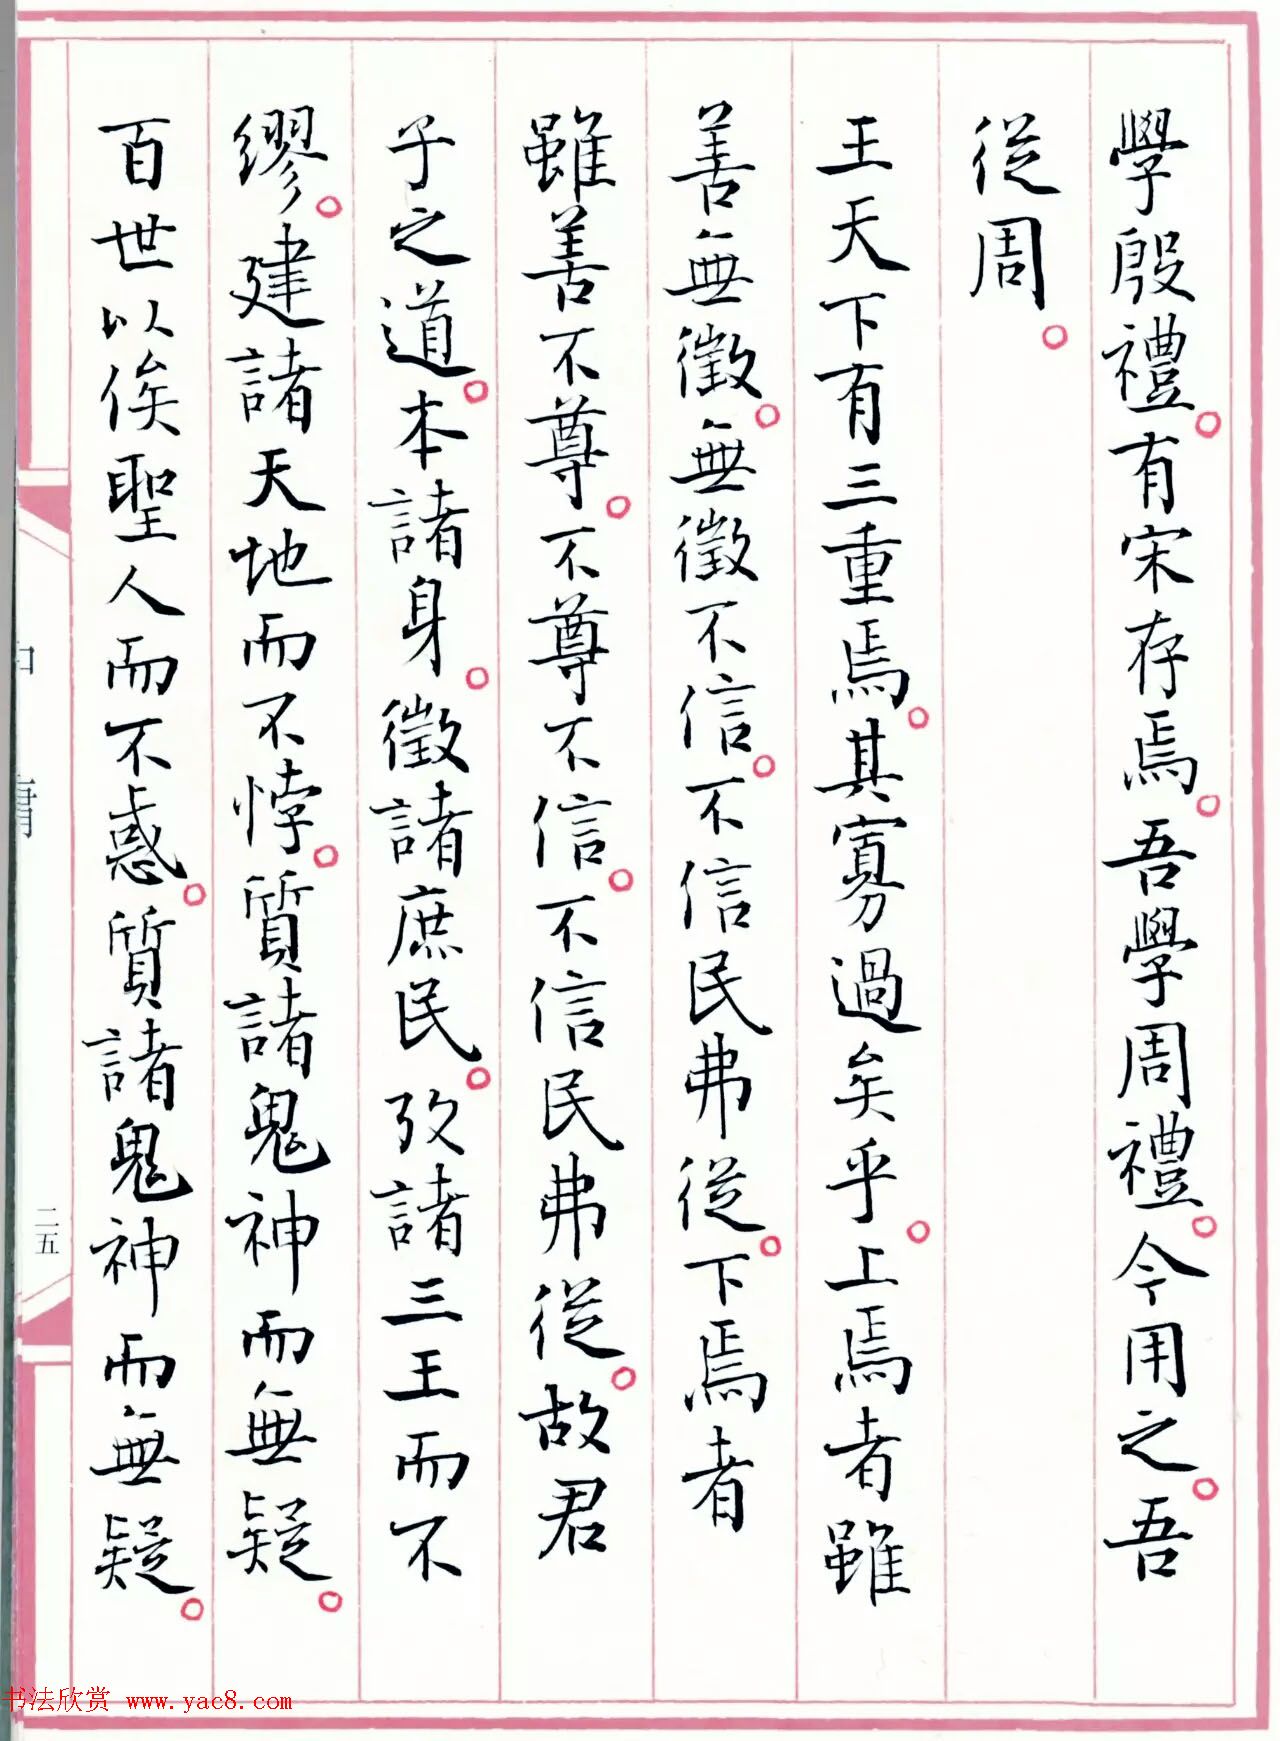 學殷禮。有宋存焉。吾學周禮。今用之。吾
從周。
王天下有三重焉。其寡過矣乎。上焉者雖
善無徵。無徵不信。不信民弗從。下焉者
雖善不尊。不尊不信。不信民弗從。故君
子之道。本諸身。徵諸庶民。攷諸三王而不
繆。建諸天地而不悖。質諸鬼神而無疑。
百世以俟聖人而不惑。質諸鬼神而無疑。
中庸
二五
书法欣赏 www.yac8.com